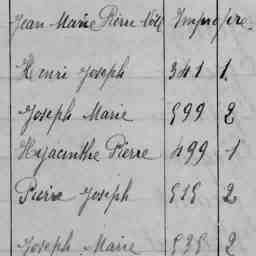 Jean Marie Pierre Noël Impropre.
Henri Joseph 341 1.
Joseph Marie 599 2
Hyacinthe Pierre 499 1
Pierre Joseph 515 2
Joseph Marie 535 2